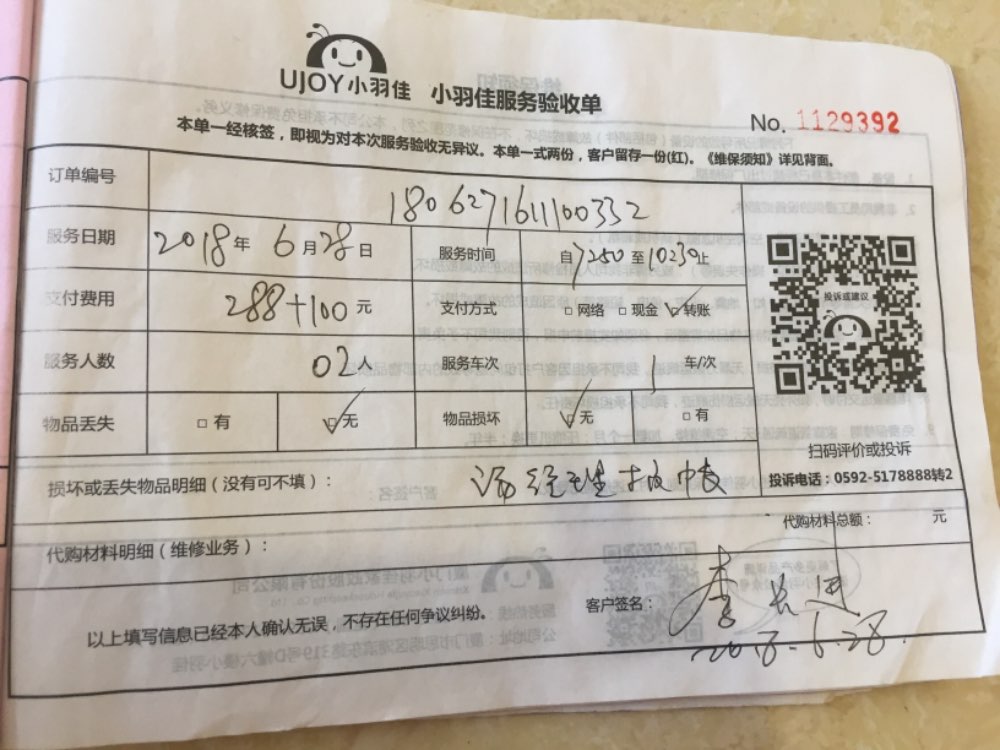 UJOY小羽佳 小羽佳服务验收单
No. 1129392
本单一经核签，即视为对本次服务验收无异议。本单一式两份，客户留存一份(红)。《维保须知》详见背面。
订单编号 180627161100332
服务日期 2018年 6月28日 服务时间 自7250至10230止
支付费用 288+100元 支付方式 □网络 □现金 ☑转账
投诉或建议
服务人数 02人 服务车次 1 车/次
物品丢失 □有 ☑无 物品损坏 ☑无 □有
扫码评价或投诉
投诉电话：0592-5178888转2
损坏或丢失物品明细（没有可不填）： 汤经理板中长
代购材料总额： 元
代购材料明细（维修业务）：
客户签名： 李
以上填写信息已经本人确认无误，不存在任何争议纠纷。
2018.6.28.